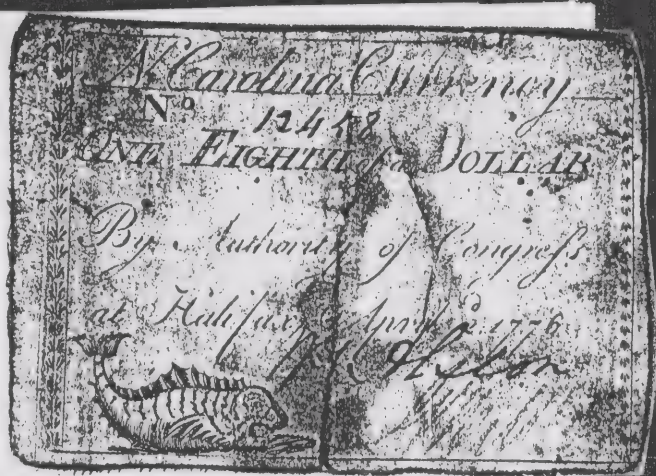 N. Carolina Currency
No 12458
ONE EIGHTH of a DOLLAR
By Authority of Congreſs
at Halifax April 2d. 1776
Alston